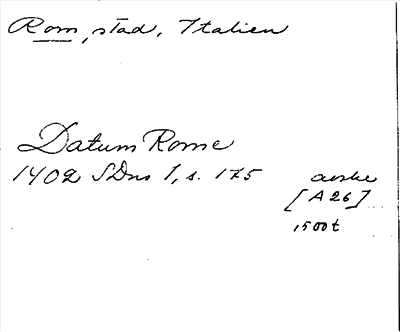 Rom, stad, Italien
Datum Rome
1402 SDns 1, s. 175
avskr
[A 26]
1500t